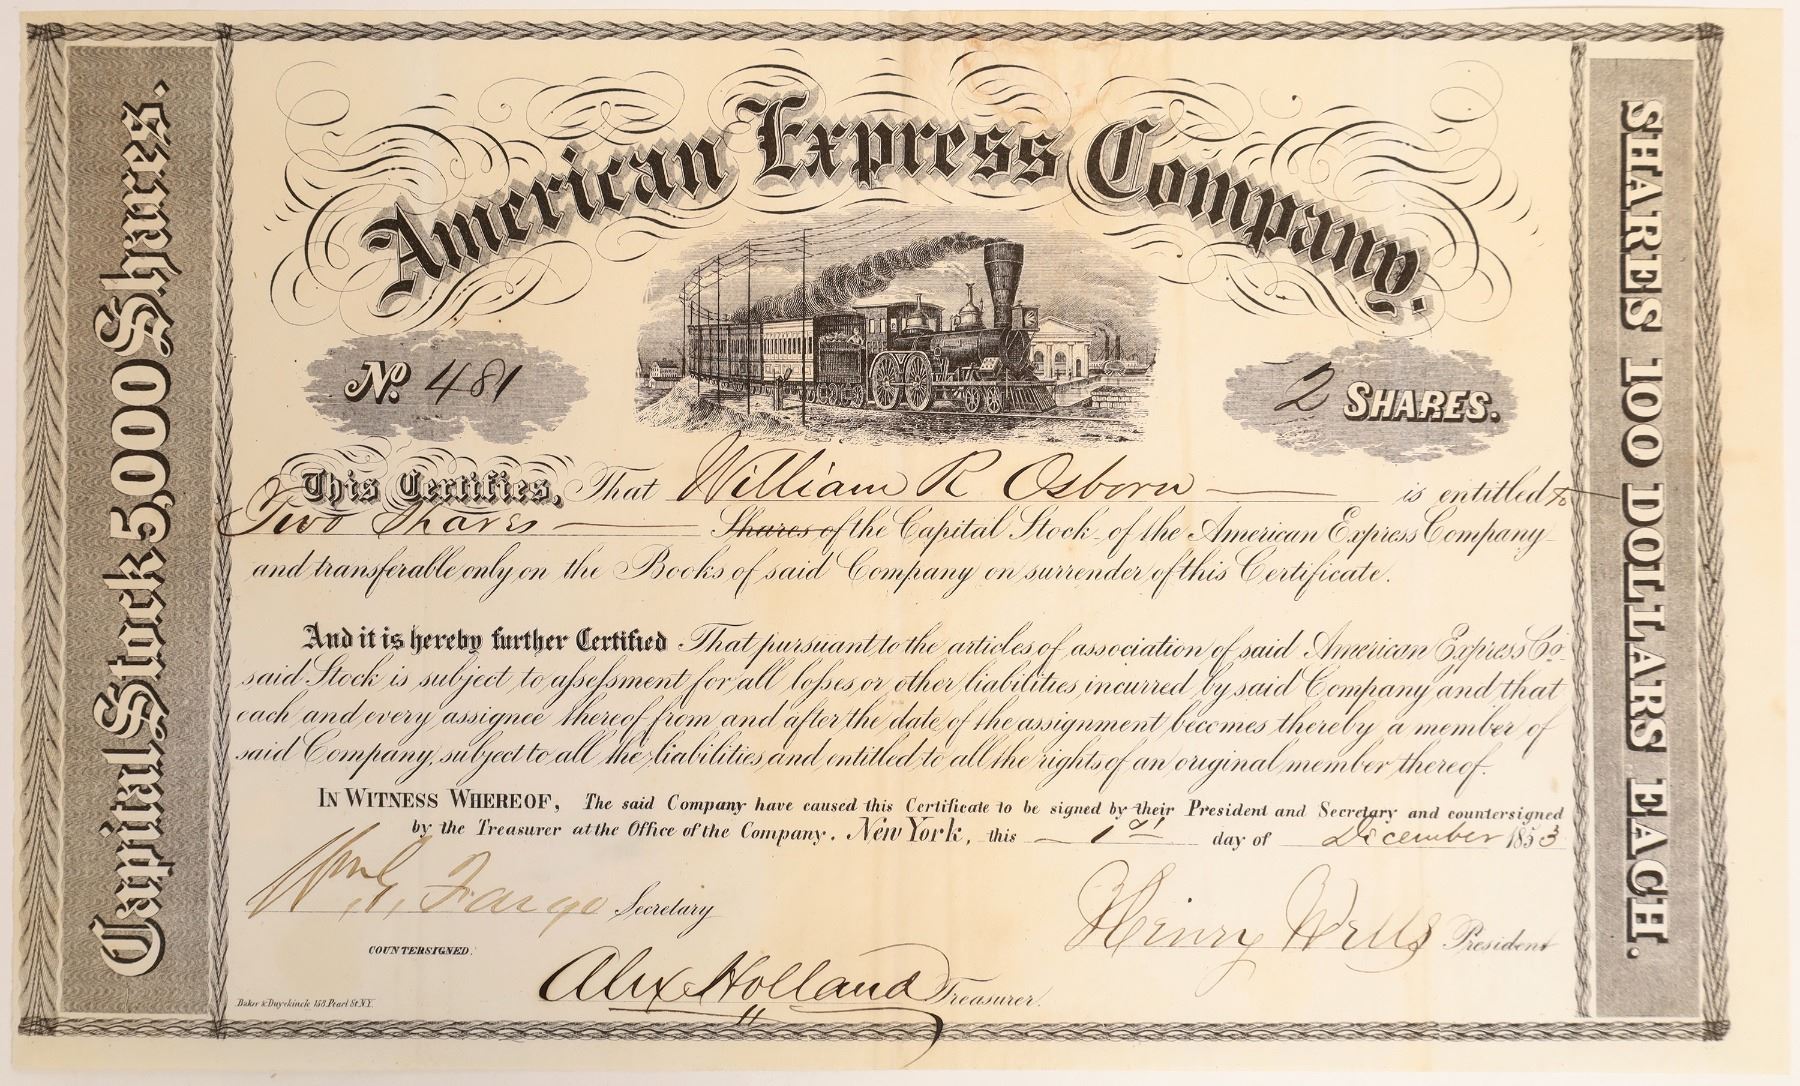 American Express Company.
Capital Stock 5,000 Shares.
SHARES 100 DOLLARS EACH.
No. 481
2 SHARES.
This Certifies, That William R Osborn is entitled to
Two Shares Shares of the Capital Stock of the American Express Company
and transferable only on the Books of said Company on surrender of this Certificate.
And it is hereby further Certified That pursuant to the articles of association of said American Express Co.
said Stock is subject to assessment for all losses or other liabilities incurred by said Company and that
each and every assignee thereof from and after the date of the assignment becomes thereby a member of
said Company, subject to all the liabilities and entitled to all the rights of an original member thereof.
IN WITNESS WHEREOF, The said Company have caused this Certificate to be signed by their President and Secretary and countersigned
by the Treasurer at the Office of the Company. New York, this 1st day of December 1853
Wm G. Fargo Secretary
Henry Wells President
COUNTERSIGNED.
Alex Holland Treasurer.
Baker & Duyckinck 158 Pearl St N.Y.